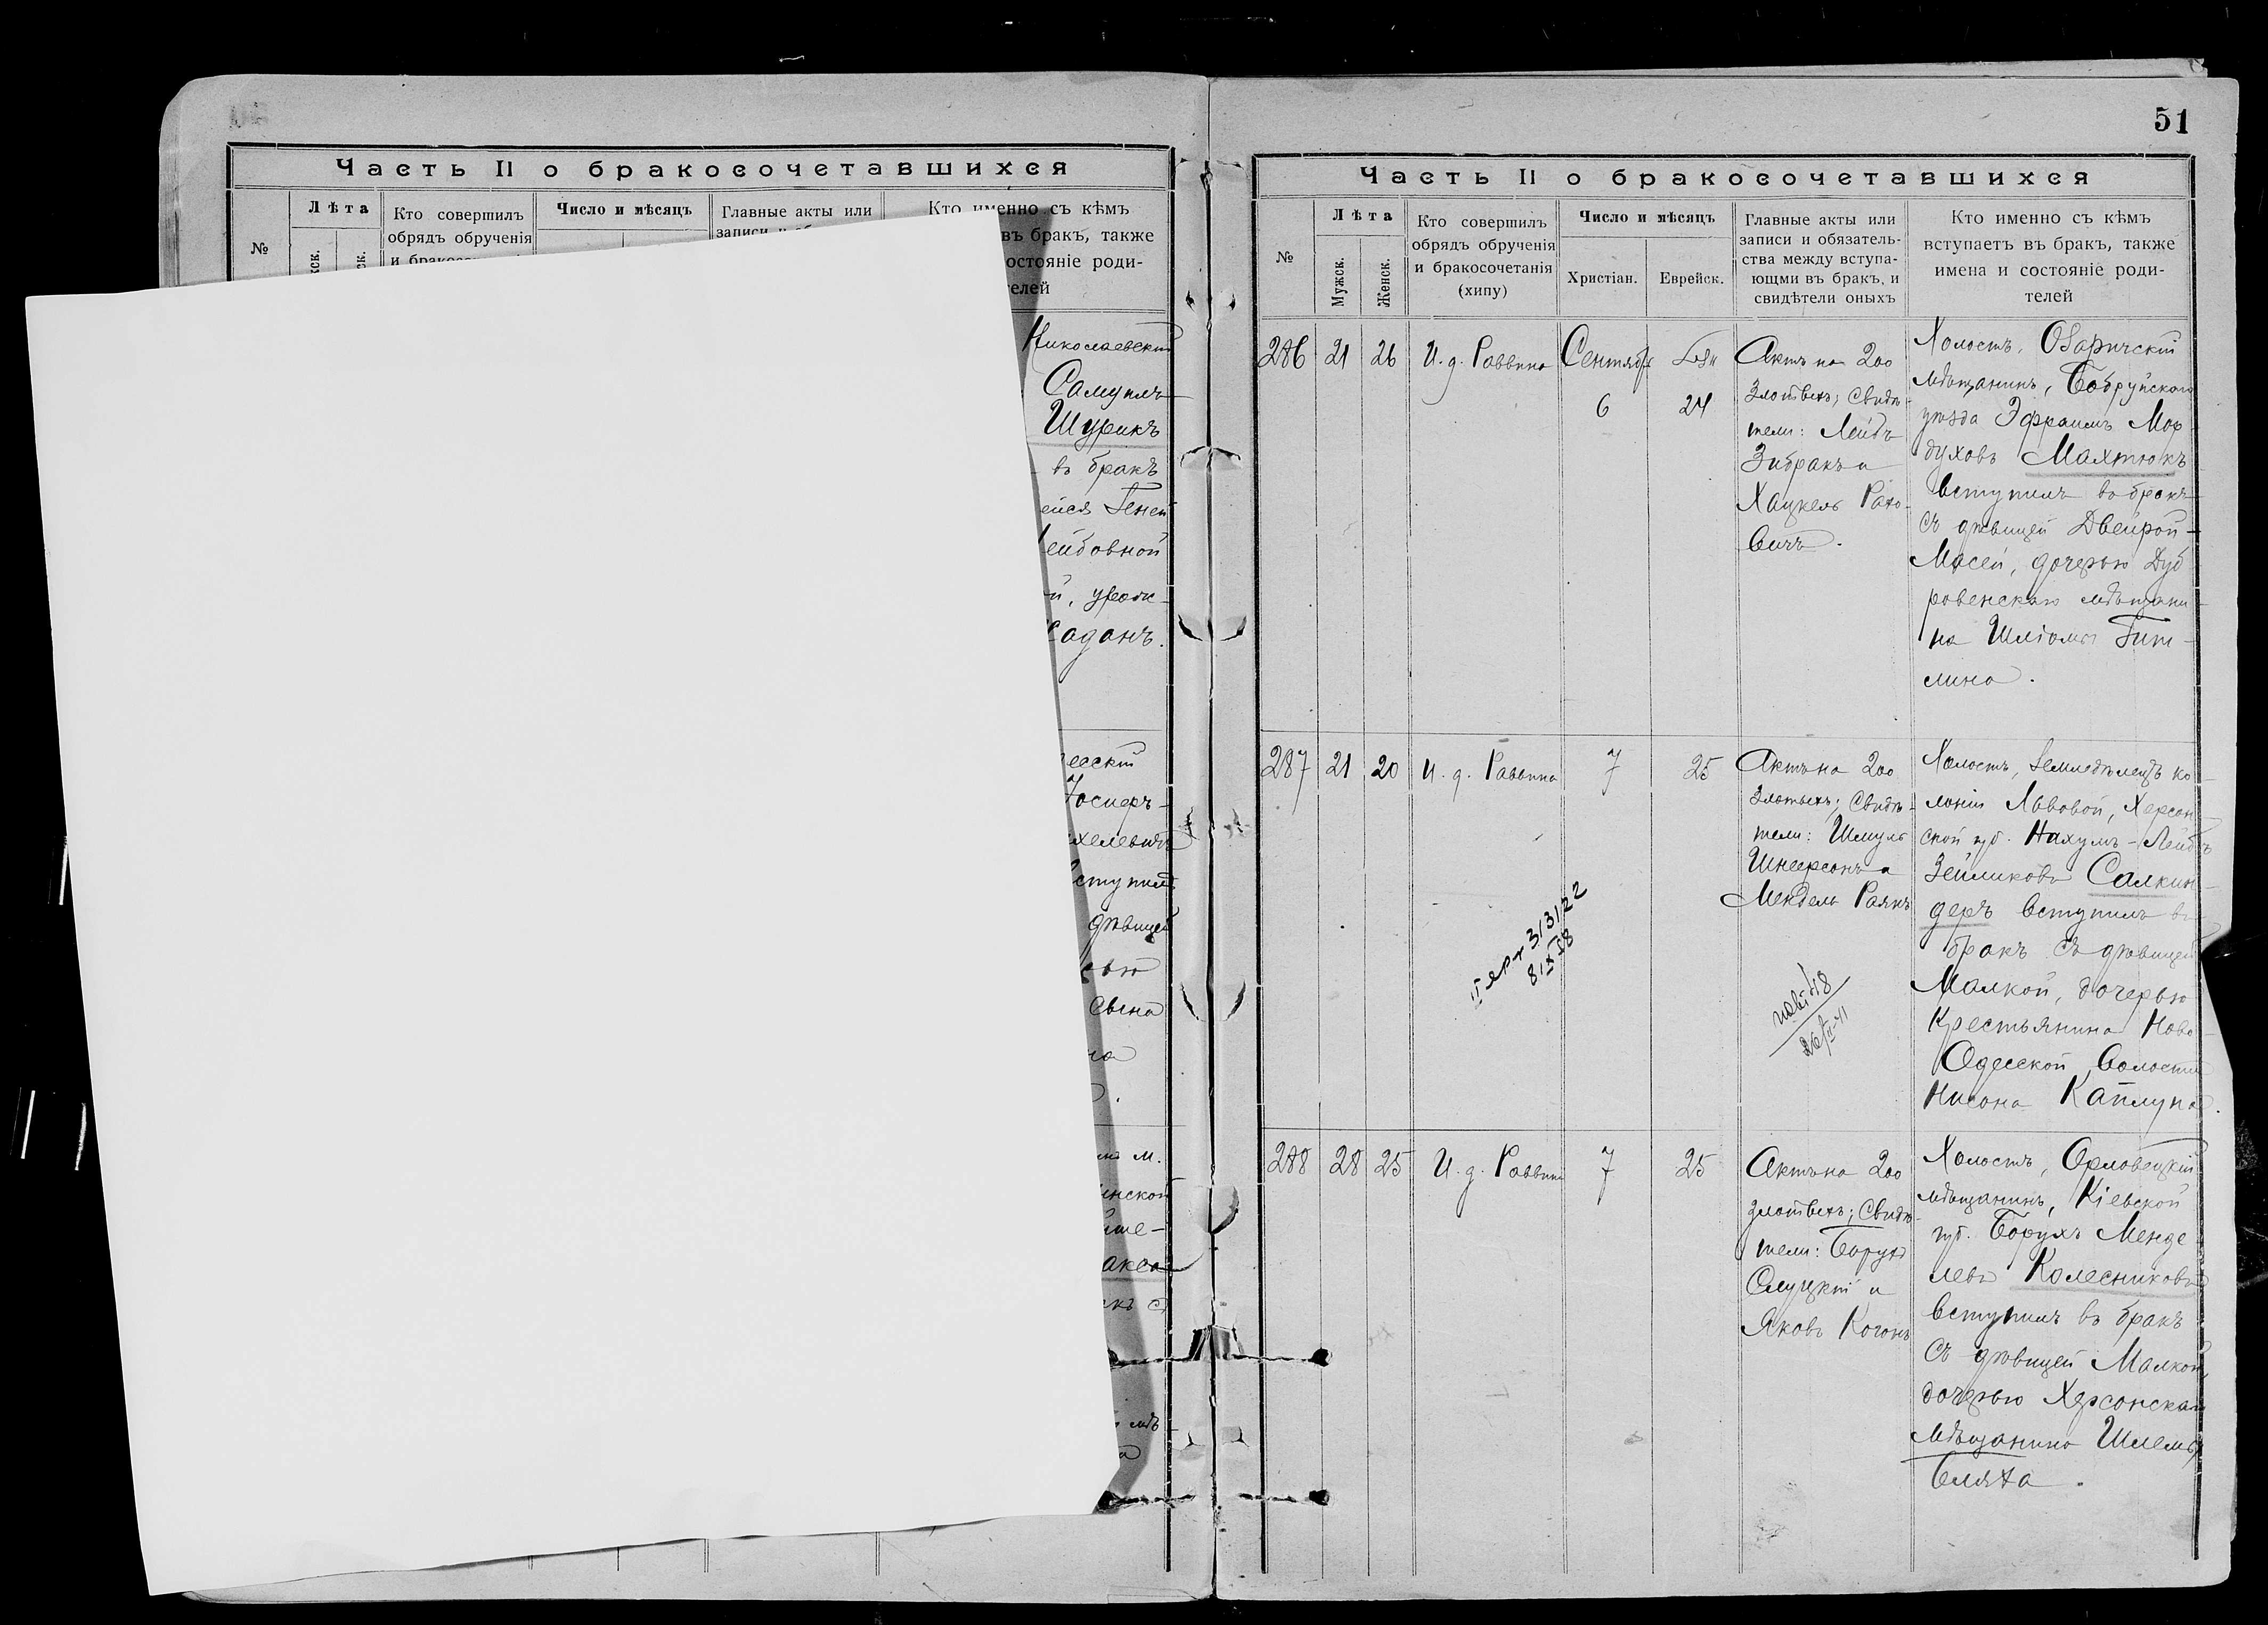 Часть II о бракосочетавшихся
№
Лѣта
Кто совершилъ
обрядъ обрученія
Число и мѣсяцъ
Главные акты или
Кто именно съ кѣмъ
въ бракъ, также
остояніе роди-
телей
Николаевскій
Самуилъ
Шурикъ
въ бракъ
ейся Геней
ейбовной
й, урож-
аданъ.
Іосперъ-
хелевичъ
ступилъ
дѣвицей
51
Часть II о бракосочетавшихся
№
Лѣта
Мужск.
Женск.
Кто совершилъ
обрядъ обрученія
и бракосочетанія
(хипу)
Число и мѣсяцъ
Христіан.
Еврейск.
Главные акты или
записи и обязатель-
ства между вступа-
ющми въ бракъ, и
свидѣтели оныхъ
Кто именно съ кѣмъ
вступаетъ въ бракъ, также
имена и состояніе роди-
телей
286
21
26
И. д. Раввина
Сентябр
6
24
Актъ на 200
злотыхъ; Свидѣ-
тели: Лейбъ
Зибракъ и
Хацкель Рабо-
вичъ.
Холостъ, Озаричскій
мѣщанинъ, Бобруйскаго
уѣзда Эфраимъ Мор-
духовъ Махтюкъ
вступилъ въ бракъ
съ дѣвицей Двейрой-
Масей, дочерью Дуб
ровенскаго мѣщани-
на Шліомы Гит-
лина.
287
21
20
И. д. Раввина
7
25
Актъ на 200
злотыхъ; Свидѣ-
тели: Шмуль
Шнеерсонъ и
Мендель Раякъ
Холостъ, Земледѣлецъ ко-
лоніи Львовой, Херсон
ской губ. Нахумъ-Лейбъ
Зейликовъ Салкин-
деръ вступилъ въ
бракъ съ дѣвицей
Малкой, дочерью
Крестьянина Ново-
Одесской Волости
Нисона Каплуна.
288
28
25
И. д. Раввина
7
25
Актъ на 200
злотыхъ; Свидѣ-
тели: Борухъ
Слуцкій и
Яковъ Когонъ
Холостъ, Орловецкій
мѣщанинъ, Кіевской
губ. Борухъ Менде
левъ Колесниковъ
вступилъ въ бракъ
съ дѣвицей Малкой,
дочерью Херсонскаго
мѣщанина Шлемы
Бляха.